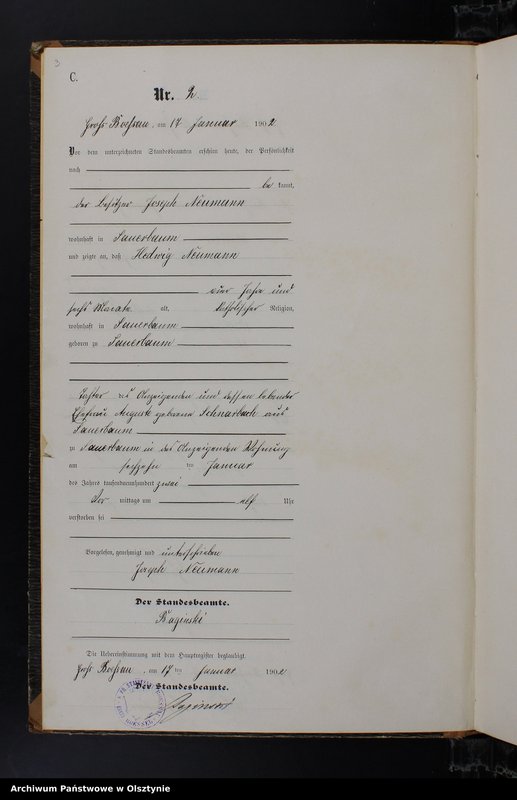 3
C.
Nr. 2.
Groß Boessau, am 17 Januar 1902.
Vor dem unterzeichneten Standesbeamten erschien heute, der Persönlichkeit
nach
be kannt,
der Besitzer Joseph Neumann
wohnhaft in Sauerbaum
und zeigte an, daß Hedwig Neumann
vier Jahre und
sechs Monate alt, katholischer Religion,
wohnhaft in Sauerbaum
geboren zu Sauerbaum
Tochter des Anzeigenden und dessen lebender
Ehefrau Auguste geborene Schnarbach aus
Sauerbaum
zu Sauerbaum in des Anzeigenden Wohnung
am sechzehn ten Januar
des Jahres tausendneunhundert zwei
Vor mittags um elf Uhr
verstorben sei
Vorgelesen, genehmigt und unterschrieben
Joseph Neumann
Der Standesbeamte.
Baginski
Die Uebereinstimmung mit dem Hauptregister beglaubigt.
Groß Boessau, am 17 ten Januar 1902
Der Standesbeamte.
Baginski
Archiwum Państwowe w Olsztynie